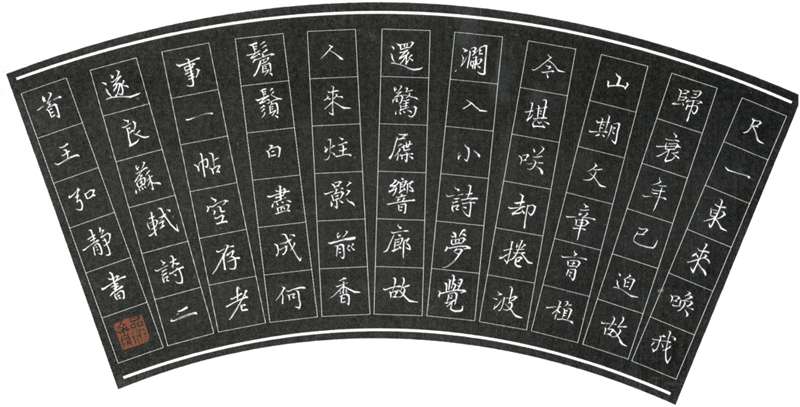 尺一東來喚我
歸衰年已迫故
山期文章曹植
今堪咲却捲波
瀾入小詩夢覺
還驚屧響廊故
人來炷影前香
鬢鬚白盡成何
事一帖空存老
遂良蘇軾詩二
首王弘静書